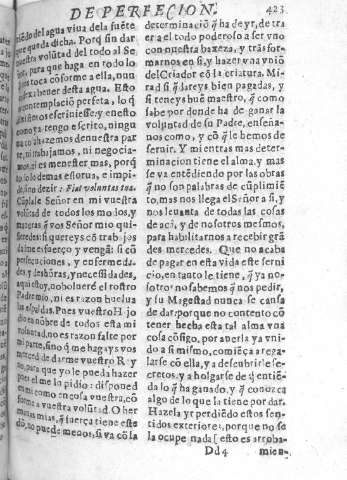 DE PERFECION.
423
niẽdo del agua viua dela fuẽte
que queda dicha. Porq̃ sin dar
nuestra volũtad del todo al Se
ñor, para que haga en todo lo
que toca cõforme a ella, nun
beuer desta agua. Esto
contemplaciõ perfeta, lo q̃
os escriuiesse: y en esto
como ya tengo escrito, ningu
na cosa hazemos de nuestra par
te, ni trabajamos, ni negocia-
mos, ni es menester mas, porq̃
todo lo demas estorua, e impi-
de, sino dezir: Fiat voluntas tua.
Cũplase Señor en mi vuestra
volũtad de todos los modos, y
maneras q̃ vos Señor mio qui-
sieredes: si quereys cõ trabajos
dadme esfuerço, y vengã: si cõ
persecuciones, y enfermeda-
des, y deshõras, y necessidades,
aqui estoy, no boluere el rostro
Padre mio, ni es razon buelua
las espaldas. Pues vuestro Hijo
dio en nõbre de todos esta mi
voluntad, no es razon falte por
mi parte, sino q̃ me hagays vos
merced de darme vuestro Rey
no, para que yo le pueda hazer
pues el me lo pidio: disponed
en mi como en cosa vuestra, cõ
forme a vuestra volũtad. O her
manas mias, q̃ fuerça tiene este
dõ, no puede menos, si va cõ la
determinaciõ q̃ ha de yr, de tra
er a el todo poderoso a ser vno
con nuestra baxeza, y trãsfor-
marnos en si, y hazer vna vniõ
del Criador cõ la criatura. Mi-
rad si q̃dareys bien pagadas, y
si teneys buẽ maestro, q̃ como
sabe por donde ha de ganar la
voluntad de su Padre, enseña-
nos como, y cõ q̃ le hemos de
seruir. Y mientras mas deter-
minacion tiene el alma, y mas
se va entẽdiendo por las obras
q̃ no son palabras de cũplimiẽ
to, mas nos llega el Señor a si, y
nos leuanta de todas las cosas
de acà, y de nosotros mesmos,
para habilitarnos a recebir grã
des mercedes. Que no acaba
de pagar en esta vida este serui
cio, en tanto le tiene, q̃ ya no-
sotros no sabemos q̃ nos pedir,
y su Magestad nunca se cansa
de dar: porque no contento cõ
tener hecha esta tal alma vna
cosa cõsigo, por auerla ya vni-
do a si mismo, comiẽça a rega-
larse cõ ella, y a descubrirle se-
cretos, y a holgarse de q̃ entiẽ-
da lo q̃ ha ganado, y q̃ conozca
algo de lo que la tiene por dar.
Hazela yr perdiẽdo estos sen-
tidos exteriores, porque no se
la ocupe nada [esto es arroba-
Dd4
mien-